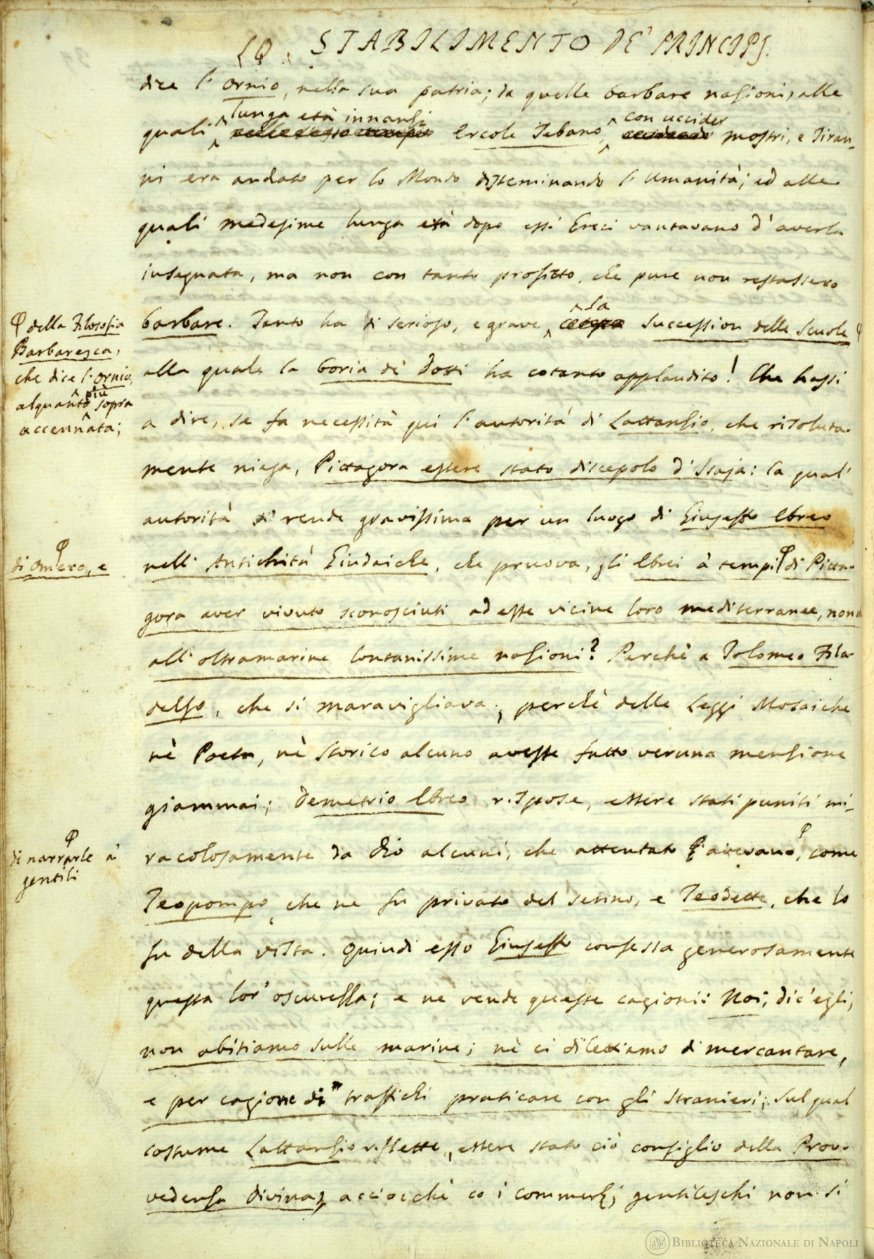 LO STABILIMENTO DE' PRINCIPJ.
dice l'Ornio, nella sua patria; da quelle barbare nazioni, alle
lunga età innanzi con uccider
quali Ercole Tebano, mostri, e Tiran-
ni era andato per lo Mondo disseminando l'Umanità; ed alle
quali medesime lunga età dopo essi Greci vantavano d'averla
insegnata, ma non con tanto profitto, che pure non restassero
la
barbare. Tanto ha di serioso, e grave, Succession delle Scuole
alla quale la Boria de' Dotti ha cotanto applaudito! Che hassi
a dire, se fa necessità qui l'autorità di Lattanzio, che risoluta-
mente niega, Pittagora essere stato discepolo d'Isaja: la qual'
autorità si rende gravissima per un luogo di Giuseffo Ebreo
nell'Antichità Giudaiche, che pruova, gli Ebrei a' tempi di Pitta-
gora aver vivuto sconosciuti ad esse vicine loro mediterranee, nonch
all'oltramarine lontanissime nazioni? Perchè a Tolomeo Fila-
delfo, che si maravigliava, perchè delle Leggi Mosaiche
nè Poeta, nè Storico alcuno avesse fatto veruna menzione
giammai; Demetrio Ebreo rispose, essere stati puniti mi-
racolosamente da Dio alcuni, che attentato avevano, come
Teopompo, che ne fu privato del senno, e Teodette, che lo
fu della vista. Quindi esso Giuseffo confessa generosamente
questa lor' oscurezza; e ne rende queste cagioni: Noi, dic'egli,
non abitiamo sulle marine; nè ci dilettiamo di mercantare,
e per cagione di traffichi praticare con gli stranieri; sul qual
costume Lattanzio riflette, essere stato ciò consiglio della Prov-
vedenza divina, acciocchè co i commerzj gentileschi non si
della Filosofia
Barbaresca,
che dice l'Ornio,
più
alquanto sopra
accennata;
di Omero, e
di narrarle a'
gentili
BIBLIOTECA NAZIONALE DI NAPOLI